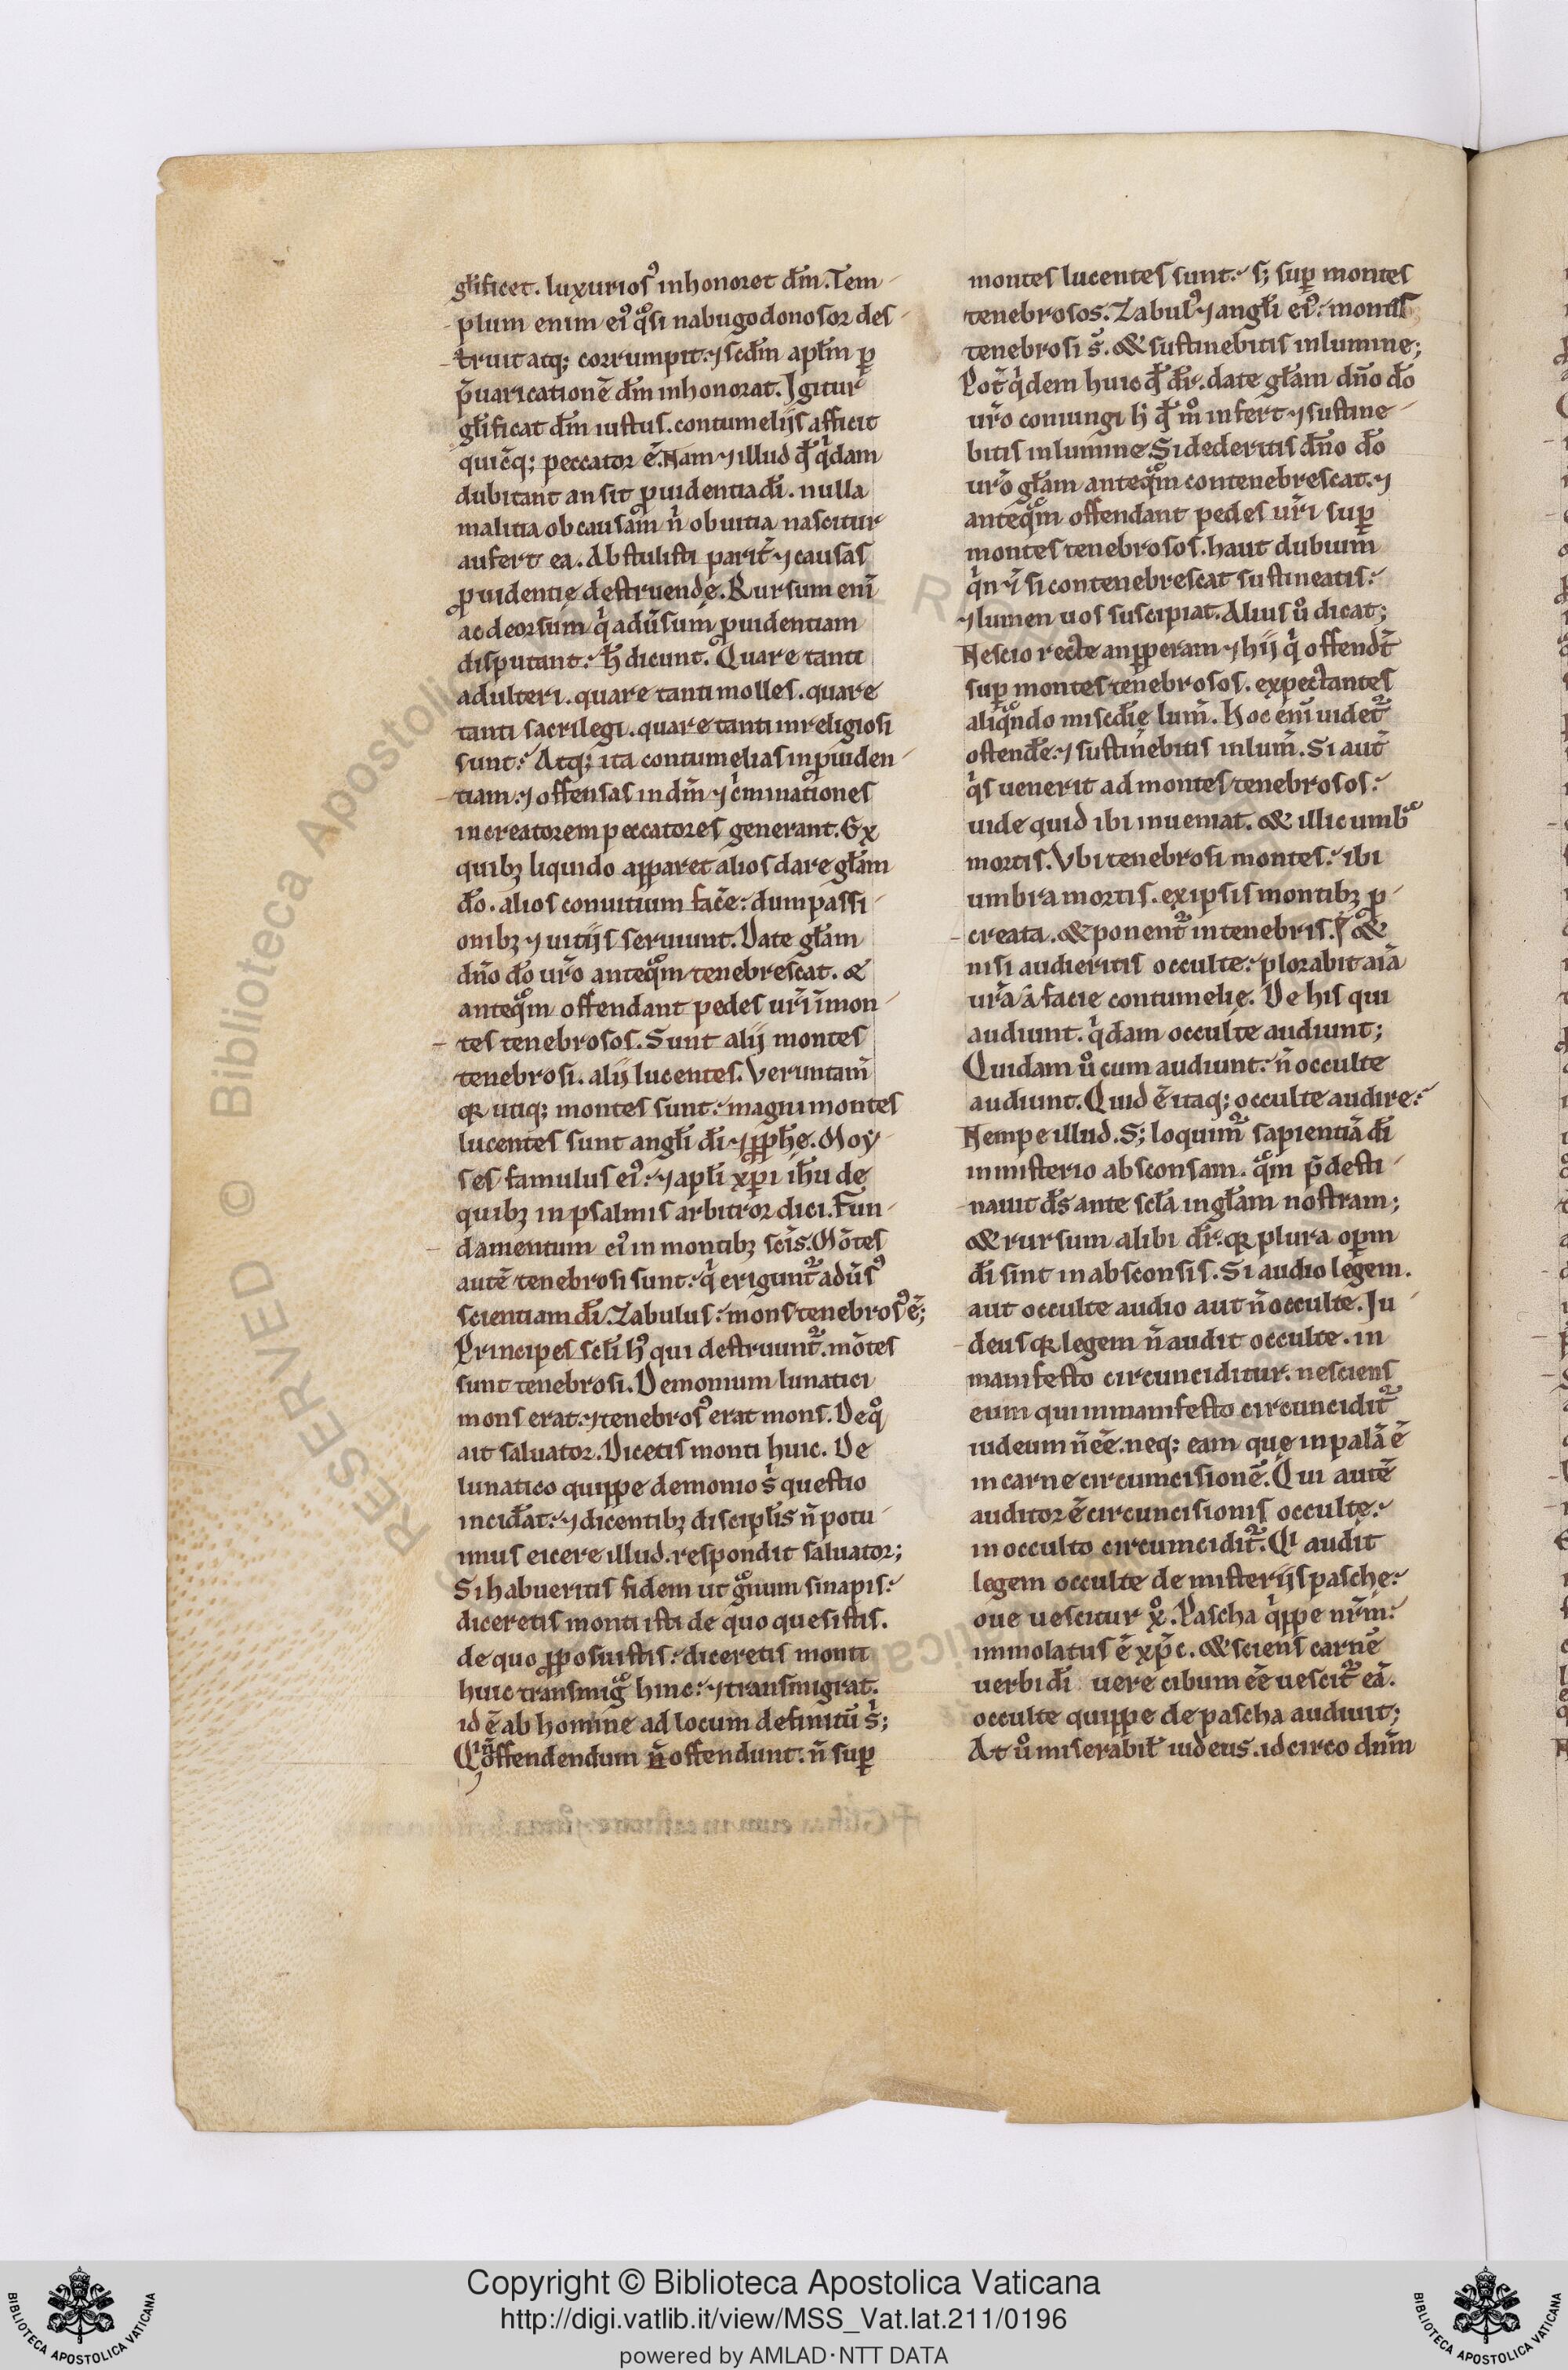 gl̄ificet. luxurios᾿ inhonoret dm̄. Tem-
plum enim ei᾿ qͦsi nabugodonosor des-
truit atq; corrumpit. ⁊ scdm̄ aplm̄ ꝑ
p̄uaricationē dm̄ inhonorat. Igitur
gl̄ificat dm̄ iustus. contumelijs afficit
quicq; peccator ē. Nam ⁊ illud qđ qͥdam
dubitant an sit ꝓuidentia dī. nulla
malitia ob causam nͥ ob uitia nascitur
aufert ea. Abstulisti parit̄ ⁊ causas
ꝓuidentię destruendę. Rursum enī
ac deorsum qͥ adūsum ꝓuidentiam
disputant. h̄ dicunt. Quare tanti
adulteri. quare tanti molles. quare
tanti sacrilegi. quare tanti inreligiosi
sunt. Atq; ita contumelias in ꝓuiden-
tiam. ⁊ offensas in dm̄ ⁊ cͥminationes
in creatorem peccatores generant. Ex
quibꝫ liquido apparet alios dare gl̄am
dō. alios conuitium facē. dum passi-
onibꝫ ⁊ uitijs seruiunt. Date gl̄am
dn̄o dō ur̄o anteqͦm tenebrescat. &
anteqͦm offendant pedes ur̄i ī mon-
tes tenebrosos. Sunt alij montes
tenebrosi. alij lucentes. Veruntam̄
qꝛ utiq; montes sunt. magni montes
lucentes sunt angl̄i dī ⁊ ꝓphę. Moy-
ses famulus ei᾿. ⁊ apl̄i xp̄i ih̄u de
quibꝫ in psalmis arbitror dici. Fun-
damentum ei᾿ in montibꝫ scīs. Mōtes
autē tenebrosi sunt. qͥ erigunt᷑ adūs᾿
scientiam dī. Zabulus. mons tenebros᾿ ē;
Principes scl̄i h᾿ qui destruunt᷑. mōtes
sunt tenebrosi. Demonium lunatici
mons erat. ⁊ tenebros᾿ erat mons. De qͦ
ait saluator. Dicetis monti huic. De
lunatico quippe demonio sͥ questio
incidāt. ⁊ dicentibꝫ discipl̄is n̄ potu-
imus eicere illud. respondit saluator;
Si habueritis fidem ut gͣnum sinapis.
diceretis monti isti de quo quesistis.
de quo ꝓposuistis. diceretis monti
huic transmigͣ hinc. ⁊ transmigrat.
id ē ab homine ad locum definitū sͥ;
Qi n̄ offendendum n̄ offendunt. n̄ suꝑ
montes lucentes sunt. s; suꝑ montes
tenebrosos. Zabul᾿ ⁊ angl̄i ei᾿. montes
tenebrosi s̄. & sustinebitis in lumine;
Pot̄ qͥdem huic qđ dr̄. date gl̄am dn̄o dō
ur̄o coniungi hͥ qđ mͦ infert ⁊ sustine-
bitis in lumine. Si dederitis dn̄o dō
ur̄o gl̄am anteqͦm contenebrescat. ⁊
anteqͦm offendant pedes ur̄i suꝑ
montes tenebrosos. haut dubium
qͥn ⁊ si contenebrescat sustineatis.
⁊ lumen uos suscipiat. Alius uͦ dicat;
Nescio recte an ꝑperam ⁊ hij qͥ offendt̄
suꝑ montes tenebrosos. expectantes
aliqͣndo miscdię lum̄. Hoc enī uidet᷑
ostendē. ⁊ sustinebitis in lum̄. Si aut̄
qͥs uenerit ad montes tenebrosos.
uide quid ibi inueniat. & illic umbͣ
mortis. Vbi tenebrosi montes. ibi
umbra mortis. ex ipsis montibꝫ ꝑ-
creata. & ponent᷑ in tenebris. &
nisi audieritis occulte. plorabit aīa
ur̄a a facie contumelię. De his qui
audiunt. qͥdam occulte audiunt;
Quidam uͦ cum audiunt. n̄ occulte
audiunt. Quid ē itaq; occulte audire.
Nempe illud. S; loquim᷑ sapientiā dī
in misterio absconsam. qͣm p̄desti-
nauit ds̄ ante scl̄a in gl̄am nostram;
& rursum alibi dr̄. qꝛ plura oꝑum
dī sint in absconsis. Si audio legem.
aut occulte audio aut n̄ occulte. Iu-
deus qꝛ legem n̄ audit occulte. in
manifesto circunciditur. nesciens
eum qui in manifesto circuncidit᷑
iudeum n̄ eē. neq; eam quę in palā ē
in carne circumcisionē. Qui autē
auditor ē circuncisionis occulte.
in occulto circumcidit᷑. Qi audit
legem occulte de misterijs paschę.
oue uescitur xͦ. Pascha qͥppe nr̄m.
immolatus ē xp̄c. & sciens carnē
uerbi dī uere cibum eē uescit᷑ eā.
occulte quippe de pascha audiuit;
At uͦ miserabil̄ iudeus. idcirco dnm̄
RESERVED © Biblioteca Apostolica
Copyright © Biblioteca Apostolica Vaticana
http://digi.vatlib.it/view/MSS_Vat.lat.211/0196
powered by AMLAD·NTT DATA
BIBLIOTECA APOSTOLICA VATICANA
BIBLIOTECA APOSTOLICA VATICANA